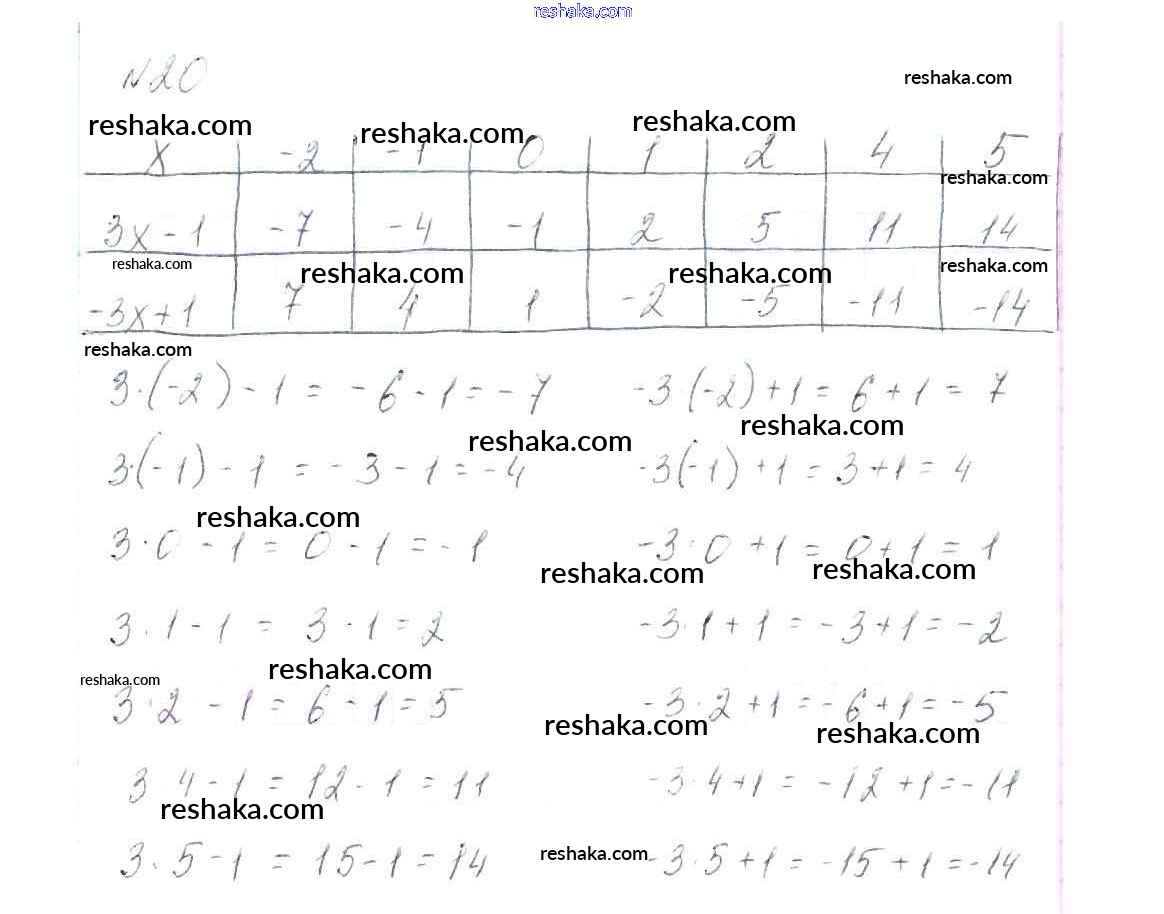 reshaka.com
N20
reshaka.com
reshaka.com reshaka.com reshaka.com
x -2 -1 0 1 2 4 5
reshaka.com
3x-1 -7 -4 -1 2 5 11 14
reshaka.com reshaka.com reshaka.com reshaka.com
-3x+1 7 4 1 -2 -5 -11 -14
reshaka.com
3·(-2)-1 = -6-1 = -7 -3·(-2)+1 = 6+1 = 7
reshaka.com reshaka.com
3·(-1)-1 = -3-1 = -4 -3(-1)+1 = 3+1 = 4
reshaka.com
3·0-1 = 0-1 = -1 -3·0+1 = 0+1 = 1
reshaka.com reshaka.com
3·1-1 = 3-1 = 2 -3·1+1 = -3+1 = -2
reshaka.com reshaka.com
3·2-1 = 6-1 = 5 -3·2+1 = -6+1 = -5
reshaka.com reshaka.com
3·4-1 = 12-1 = 11 -3·4+1 = -12+1 = -11
reshaka.com
3·5-1 = 15-1 = 14 reshaka.com -3·5+1 = -15+1 = -14